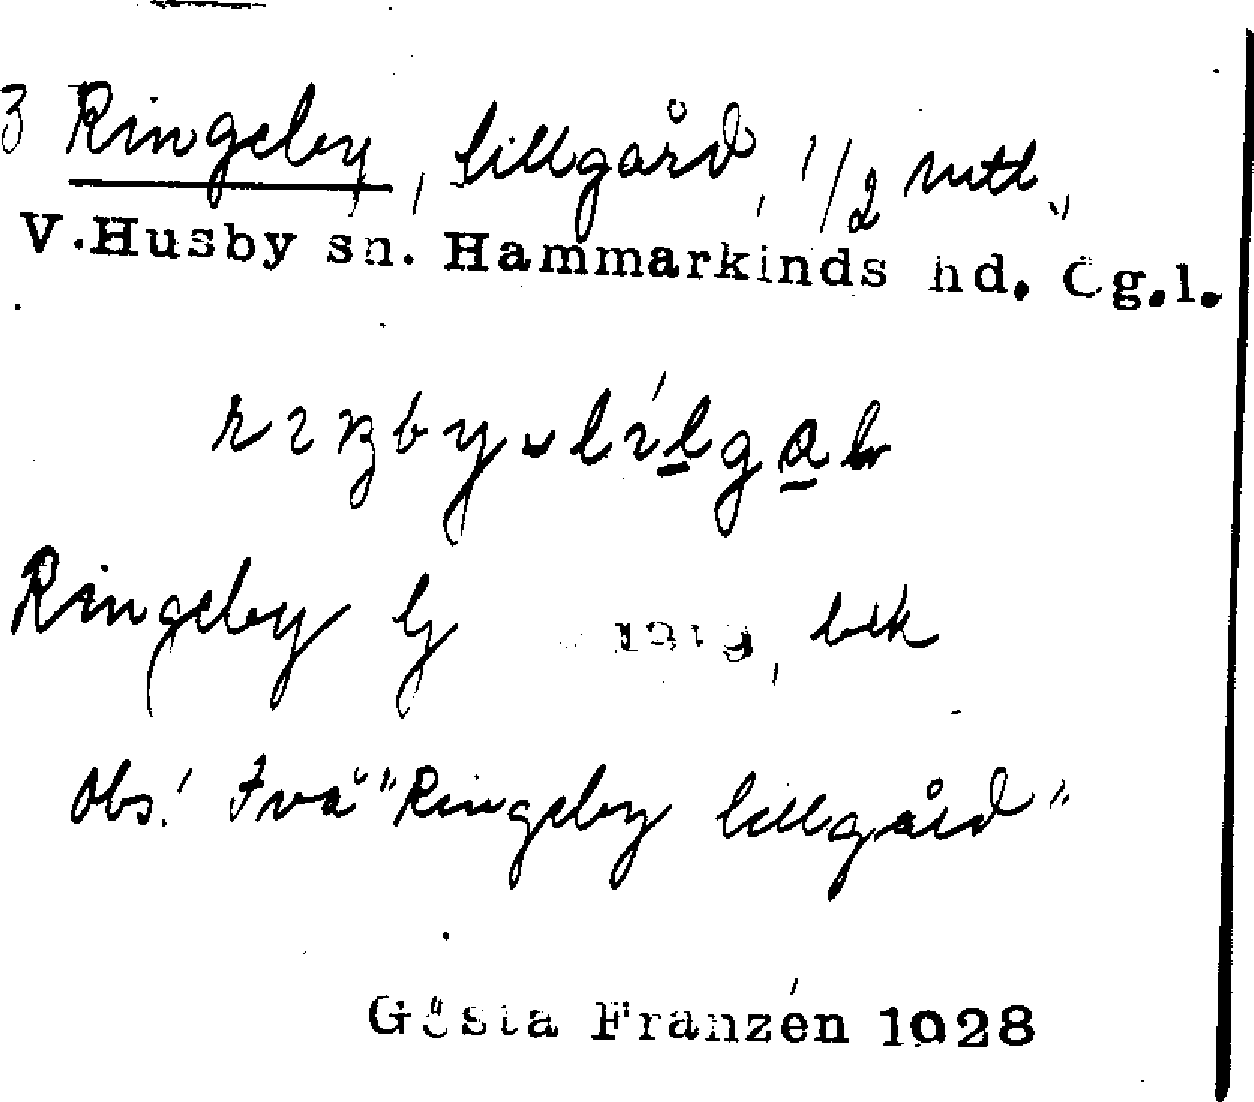 3 Ringeby, lillgård, 1/2 mtl.,
V.Husby sn. Hammarkinds hd. Ög.l.
Ringeby lg, bek
Obs! Två "Ringeby lillgård"
Gösta Franzén 1928